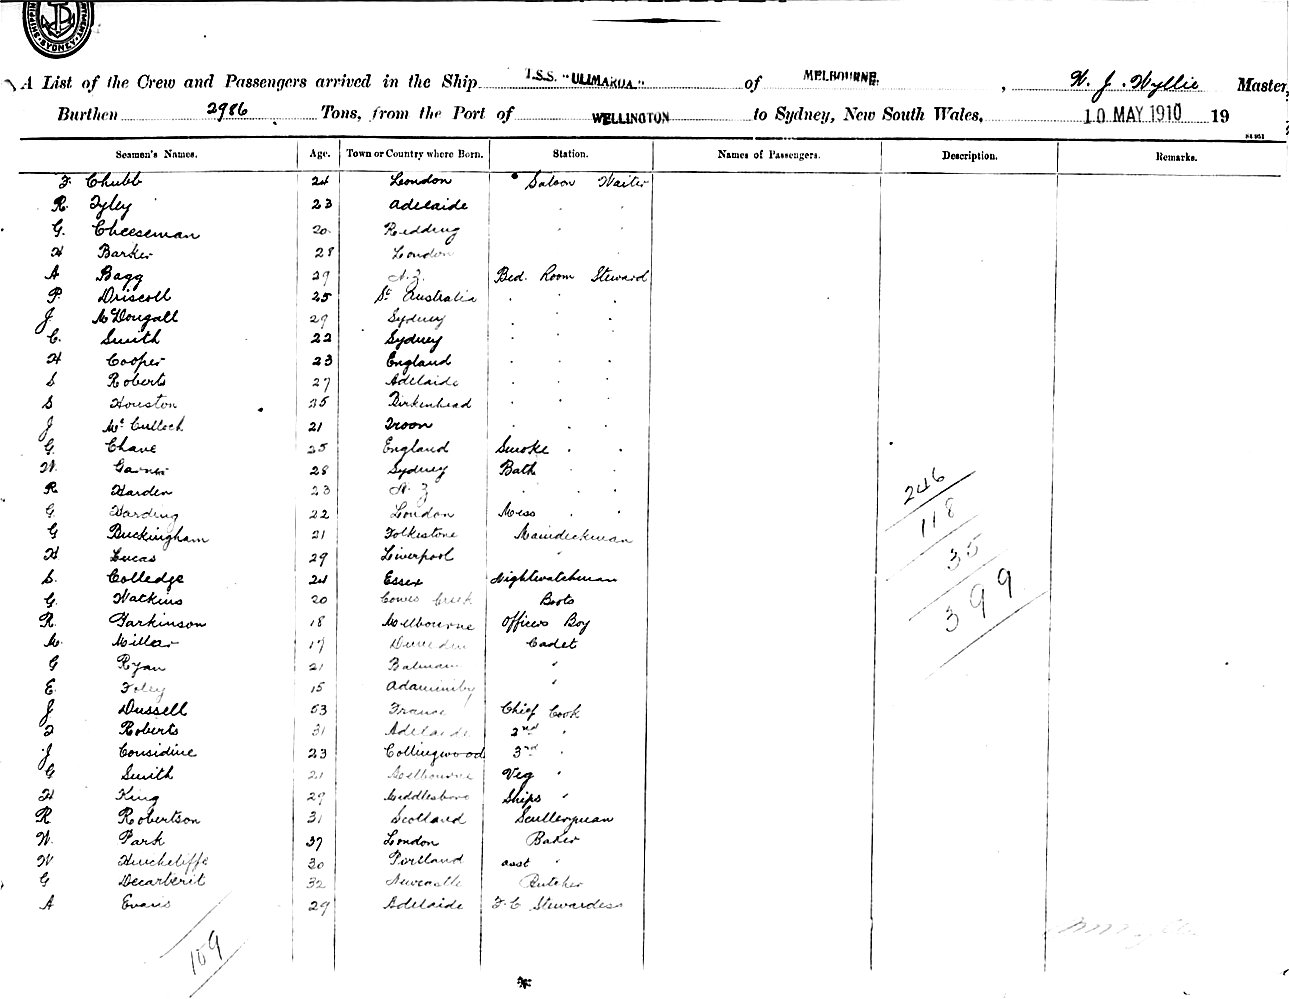 SYDNEY
A List of the Crew and Passengers arrived in the Ship T.S.S. "ULIMAROA" of MELBOURNE, W. J. Wyllie Master,
Burthen 2986 Tons, from the Port of WELLINGTON to Sydney, New South Wales, 10 MAY 1910 19
Seamen's Names. Age. Town or Country where Born. Station. Names of Passengers. Description. Remarks.
F. Chubb 24 London Saloon Waiter
R. Tyley 23 Adelaide " "
G. Cheeseman 20 Redding " "
H Barker 28 London
A Bagg 29 N.Z. Bed Room Steward
P. Driscoll 25 St Australia " " "
J McDougall 29 Sydney " " "
C. Smith 22 Sydney " " "
H Cooper 23 England " " "
S Roberts 27 Adelaide " " "
S Houston 35 Birkenhead " " "
J McCulloch 21 Troon " " "
G. Chave 25 England Smoke " "
W. Garner 28 Sydney Bath " "
R Harden 23 N.Z " " "
G Harding 22 London Mess " "
G Buckingham 21 Folkestone Maindeckman
H Lucas 29 Liverpool "
S. Colledge 24 Essex Nightwatchman
G. Watkins 20 Cowes Creek Boots
R. Parkinson 18 Melbourne Officers Boy
M. Millar 17 Dunedin Cadet
G Ryan 21 Balmain "
E. Foley 15 Adaminiby "
J Dussell 53 France Chief Cook
F Roberts 31 Adelaide 2nd "
J Considine 23 Collingwood 3rd "
G Smith 21 Melbourne Veg "
H King 29 Middlesboro Ships "
R Robertson 31 Scotland Sculleryman
W. Park 37 London Baker
W Hinchcliffe 30 Portland asst "
G Decarberit 32 Newcastle Butcher
A Evans 29 Adelaide F.C Stewardess
246
118
35
399
109